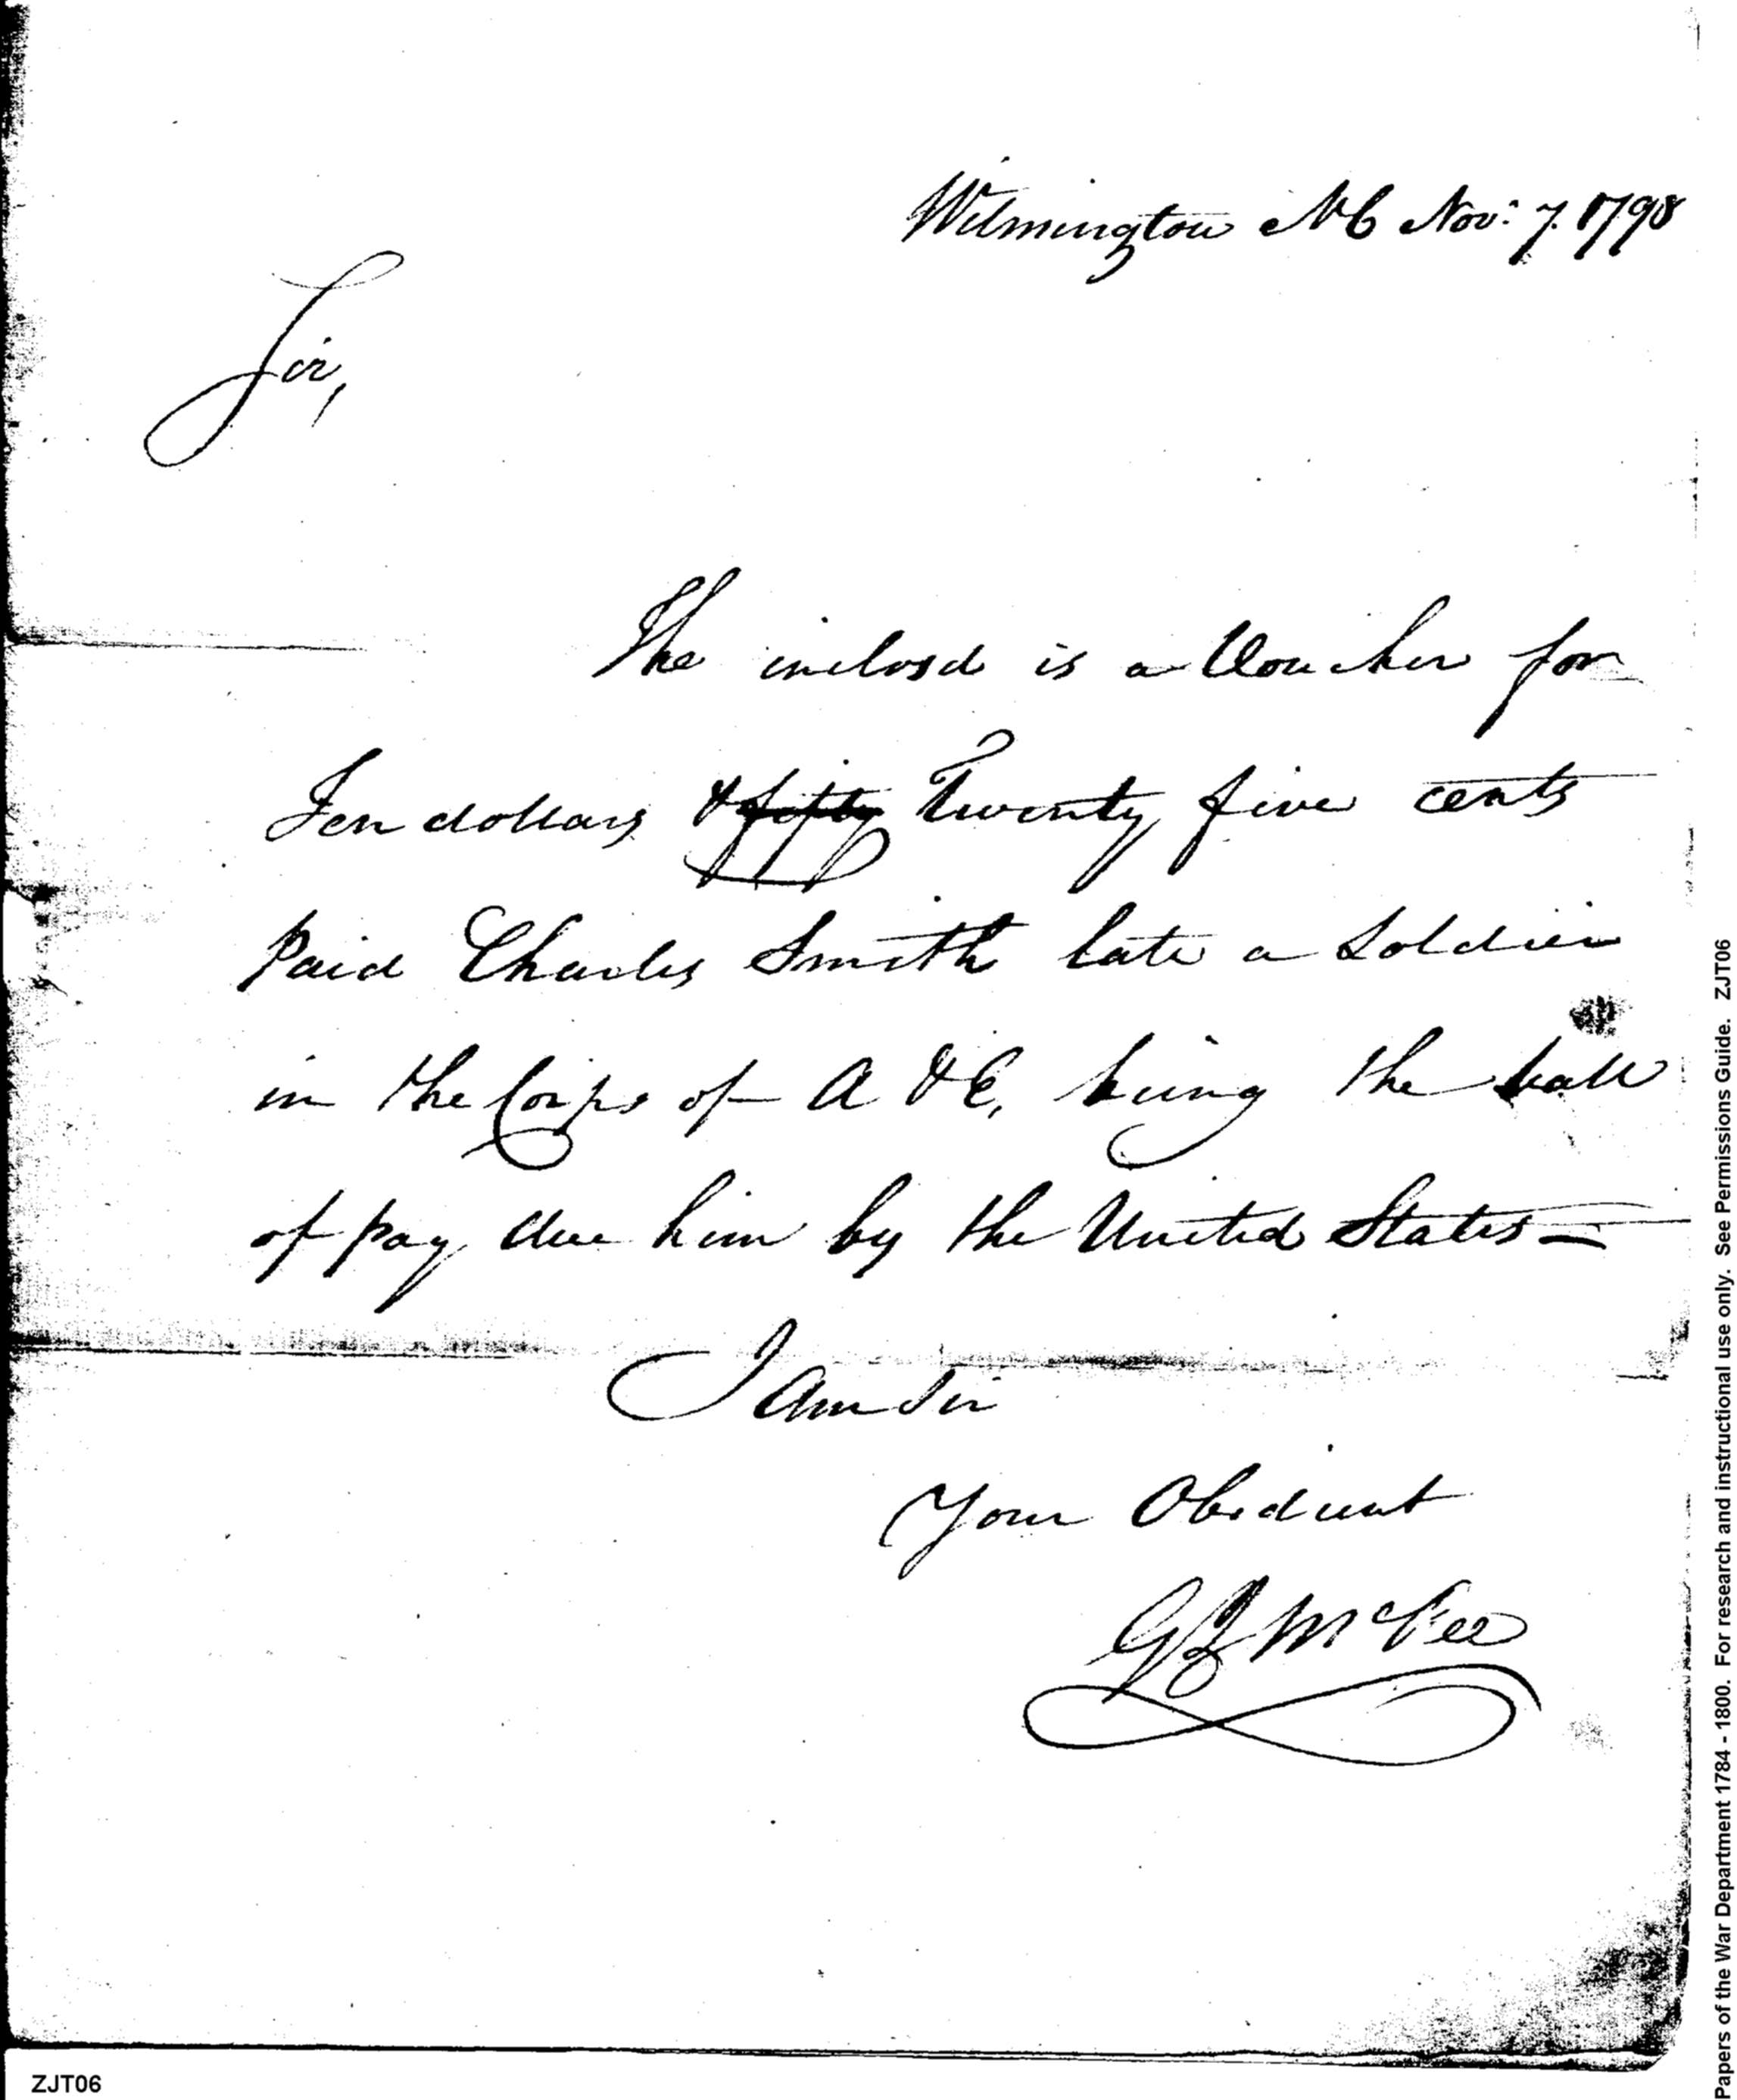 Wilmington NC Nov: 7. 1798
Sir,
The inclosd is a Voucher for
Ten dollars & fifty Twenty five cents
paid Charles Smith late a Soldier
in the Corps of A & E, being the
of pay due him by the United States —
I am Sir
Your Obedient
McFee
ZJT06
Papers of the War Department 1784 - 1800. For research and instructional use only. See Permissions Guide. ZJT06